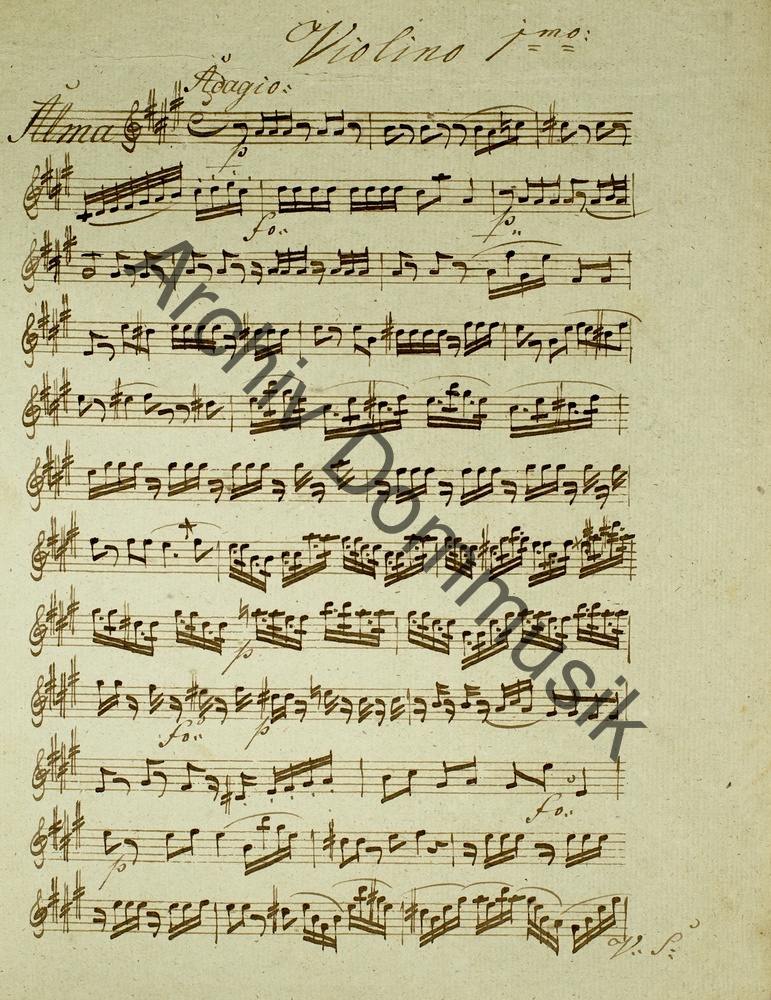 Violino 1mo:
Adagio:
Alma
p
fo:
p:
p
fo:
p
fo:
p
V: S:
Archiv Dommusik